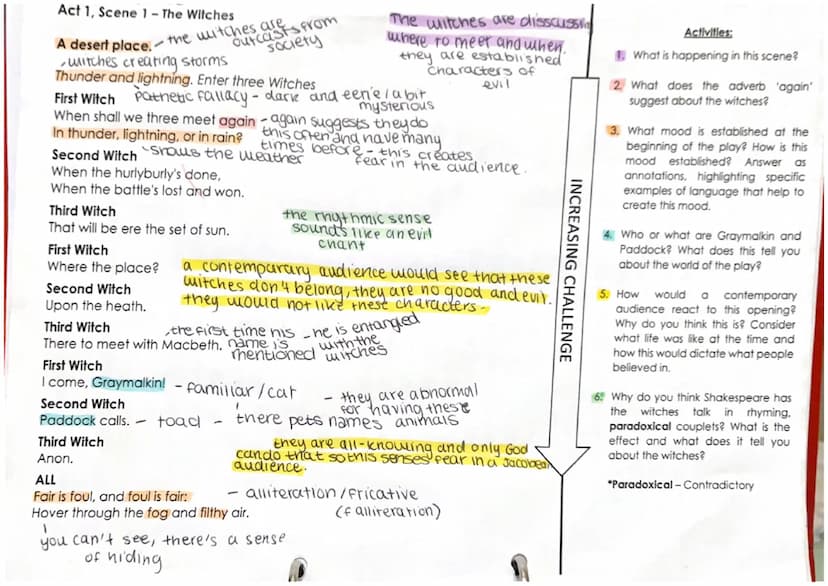 Act 1, Scene 1 – The Witches
A desert place. - the witches are
outcasts from
society
witches creating storms
Thunder and lightning. Enter three Witches
The witches are disscussin
where to meet and when.
they are established
characters of
evil
First Witch
Pathetic fallacy - dark and eerie / a bit
mysterious
When shall we three meet again - again suggests they do
this often and have many
times before - this creates
fear in the audience.
In thunder, lightning, or in rain?
shows the weather
Second Witch
When the hurlyburly's done,
When the battle's lost and won.
Third Witch
That will be ere the set of sun.
the rhythmic sense
sounds like an evil
chant
First Witch
Where the place?
Second Witch
Upon the heath.
a contemparary audience would see that these
witches don't belong, they are no good and evil.
they would not like these characters.
Third Witch
There to meet with Macbeth.
the first time his
name is
mentioned
- he is entangled
with the
witches
First Witch
I come, Graymalkin! - familiar / cat
- they are abnormal
for having these
animals
Second Witch
Paddock calls. - toad - there pets names
Third Witch
Anon.
they are all-knowing and only God
can do that so this senses fear in a Jacobean
audience.
ALL
Fair is foul, and foul is fair: - alliteration / fricative
(f alliteration)
Hover through the fog and filthy air.
you can't see, there's a sense
of hiding
INCREASING CHALLENGE
Activities:
1. What is happening in this scene?
2. What does the adverb 'again'
suggest about the witches?
3. What mood is established at the
beginning of the play? How is this
mood established? Answer as
annotations, highlighting specific
examples of language that help to
create this mood.
4. Who or what are Graymalkin and
Paddock? What does this tell you
about the world of the play?
5. How would a contemporary
audience react to this opening?
Why do you think this is? Consider
what life was like at the time and
how this would dictate what people
believed in.
6. Why do you think Shakespeare has
the witches talk in rhyming,
paradoxical couplets? What is the
effect and what does it tell you
about the witches?
*Paradoxical – Contradictory